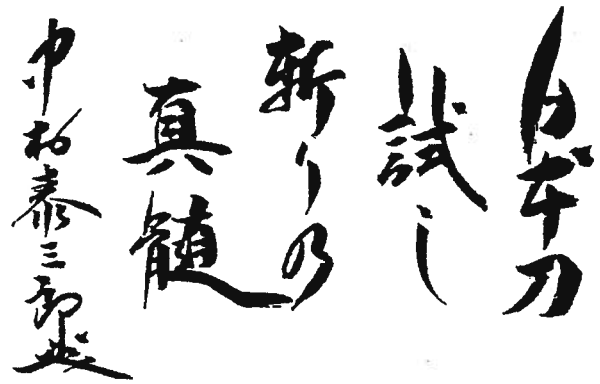 日本刀
試し
斬りの
真髄
中村泰三郎